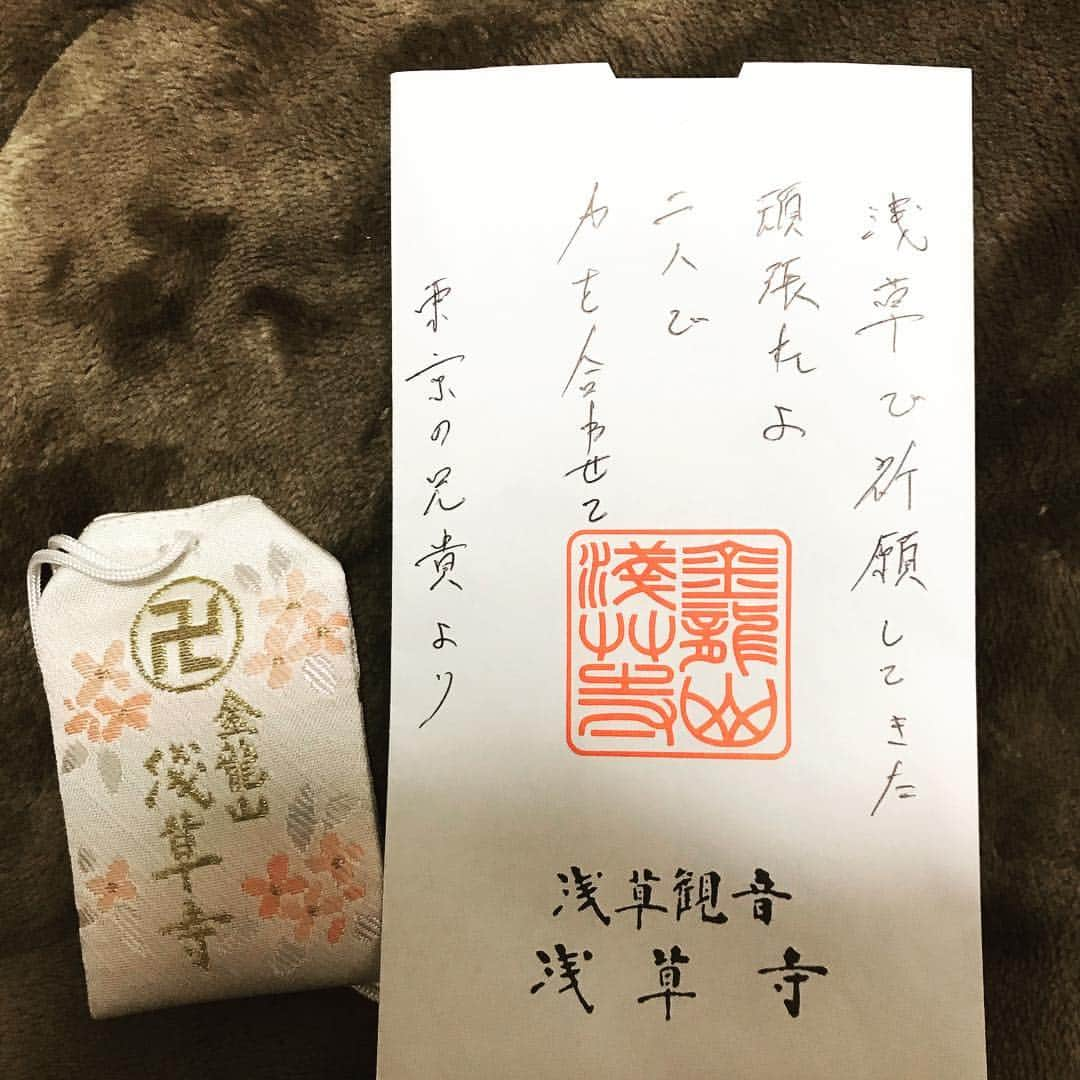 浅草で祈願してきた
頑張れよ
二人で
力を合わせて
東京の兄貴より
金龍山
淺草寺
浅草観音
浅草寺
卍
金龍山
浅草寺